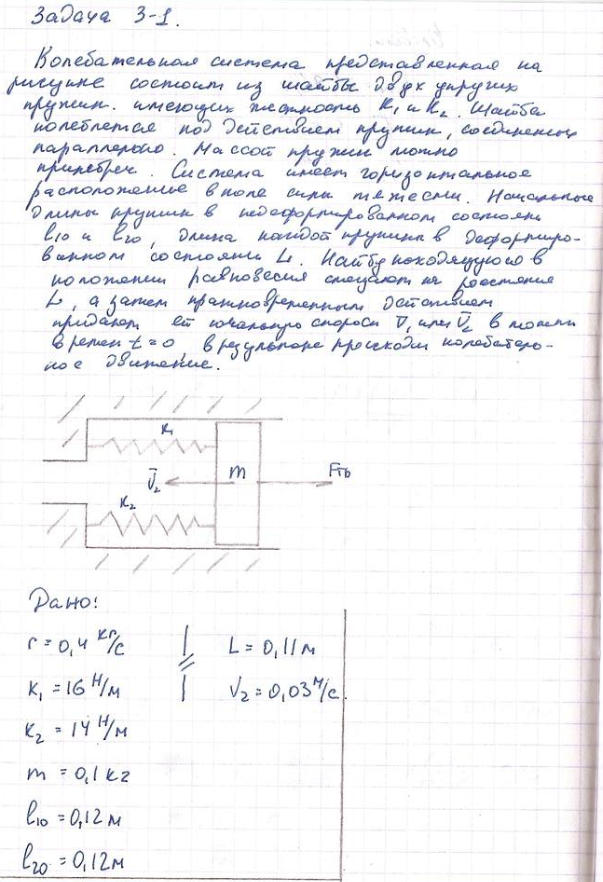 Задача 3-1.
Колебательная система представленная на
рисунке состоит из шайбы двух упругих
пружин. имеющих жесткость K₁ и K₂. Шайба
колеблется под действием пружин, соединенных
параллельно. Массой пружин можно
пренебреч. Система имеет горизонтальное
расположение в поле силы тяжести. Начальные
длины пружин в недеформированном состояни
l10 и l20, длина каждой пружины в деформиро-
ванном состоянии L. Шайбу находящуюся в
положении равновесия смещают на расстояние
L, а затем кратковременным действием
придают ей начальную скорость V̄₁ или V̄₂ в момент
времен t=0 в результате происходи колебатель-
ное движение.
K₁
V̄₂ m Fтр
K₂
Дано:
r = 0,4 кг/с L = 0,11 м
K₁ = 16 Н/м V₂ = 0,03 м/с.
K₂ = 14 Н/м
m = 0,1 кг
l10 = 0,12 м
l20 = 0,12 м